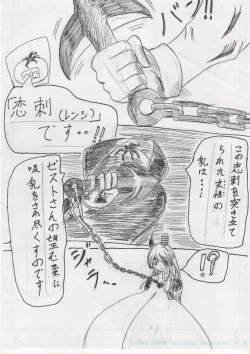 バンッ
「恋刺
(レンジ)」
です…!!
この恋刺を突き立て
られた女性の
乳は……
ゼストさんの望む量に
吸乳をされ尽くすのです
ジャ
ラ…
!?